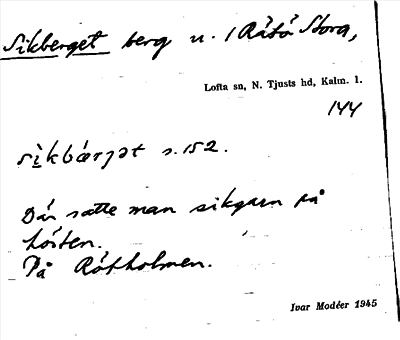 Sikberget berg n. / Råtå Stora,
Lofta sn, N. Tjusts hd, Kalm. l.
144
sìkbærjət s. 152.
Där satte man sikgarn på
hösten.
På Rötholmen.
Ivar Modéer 1945